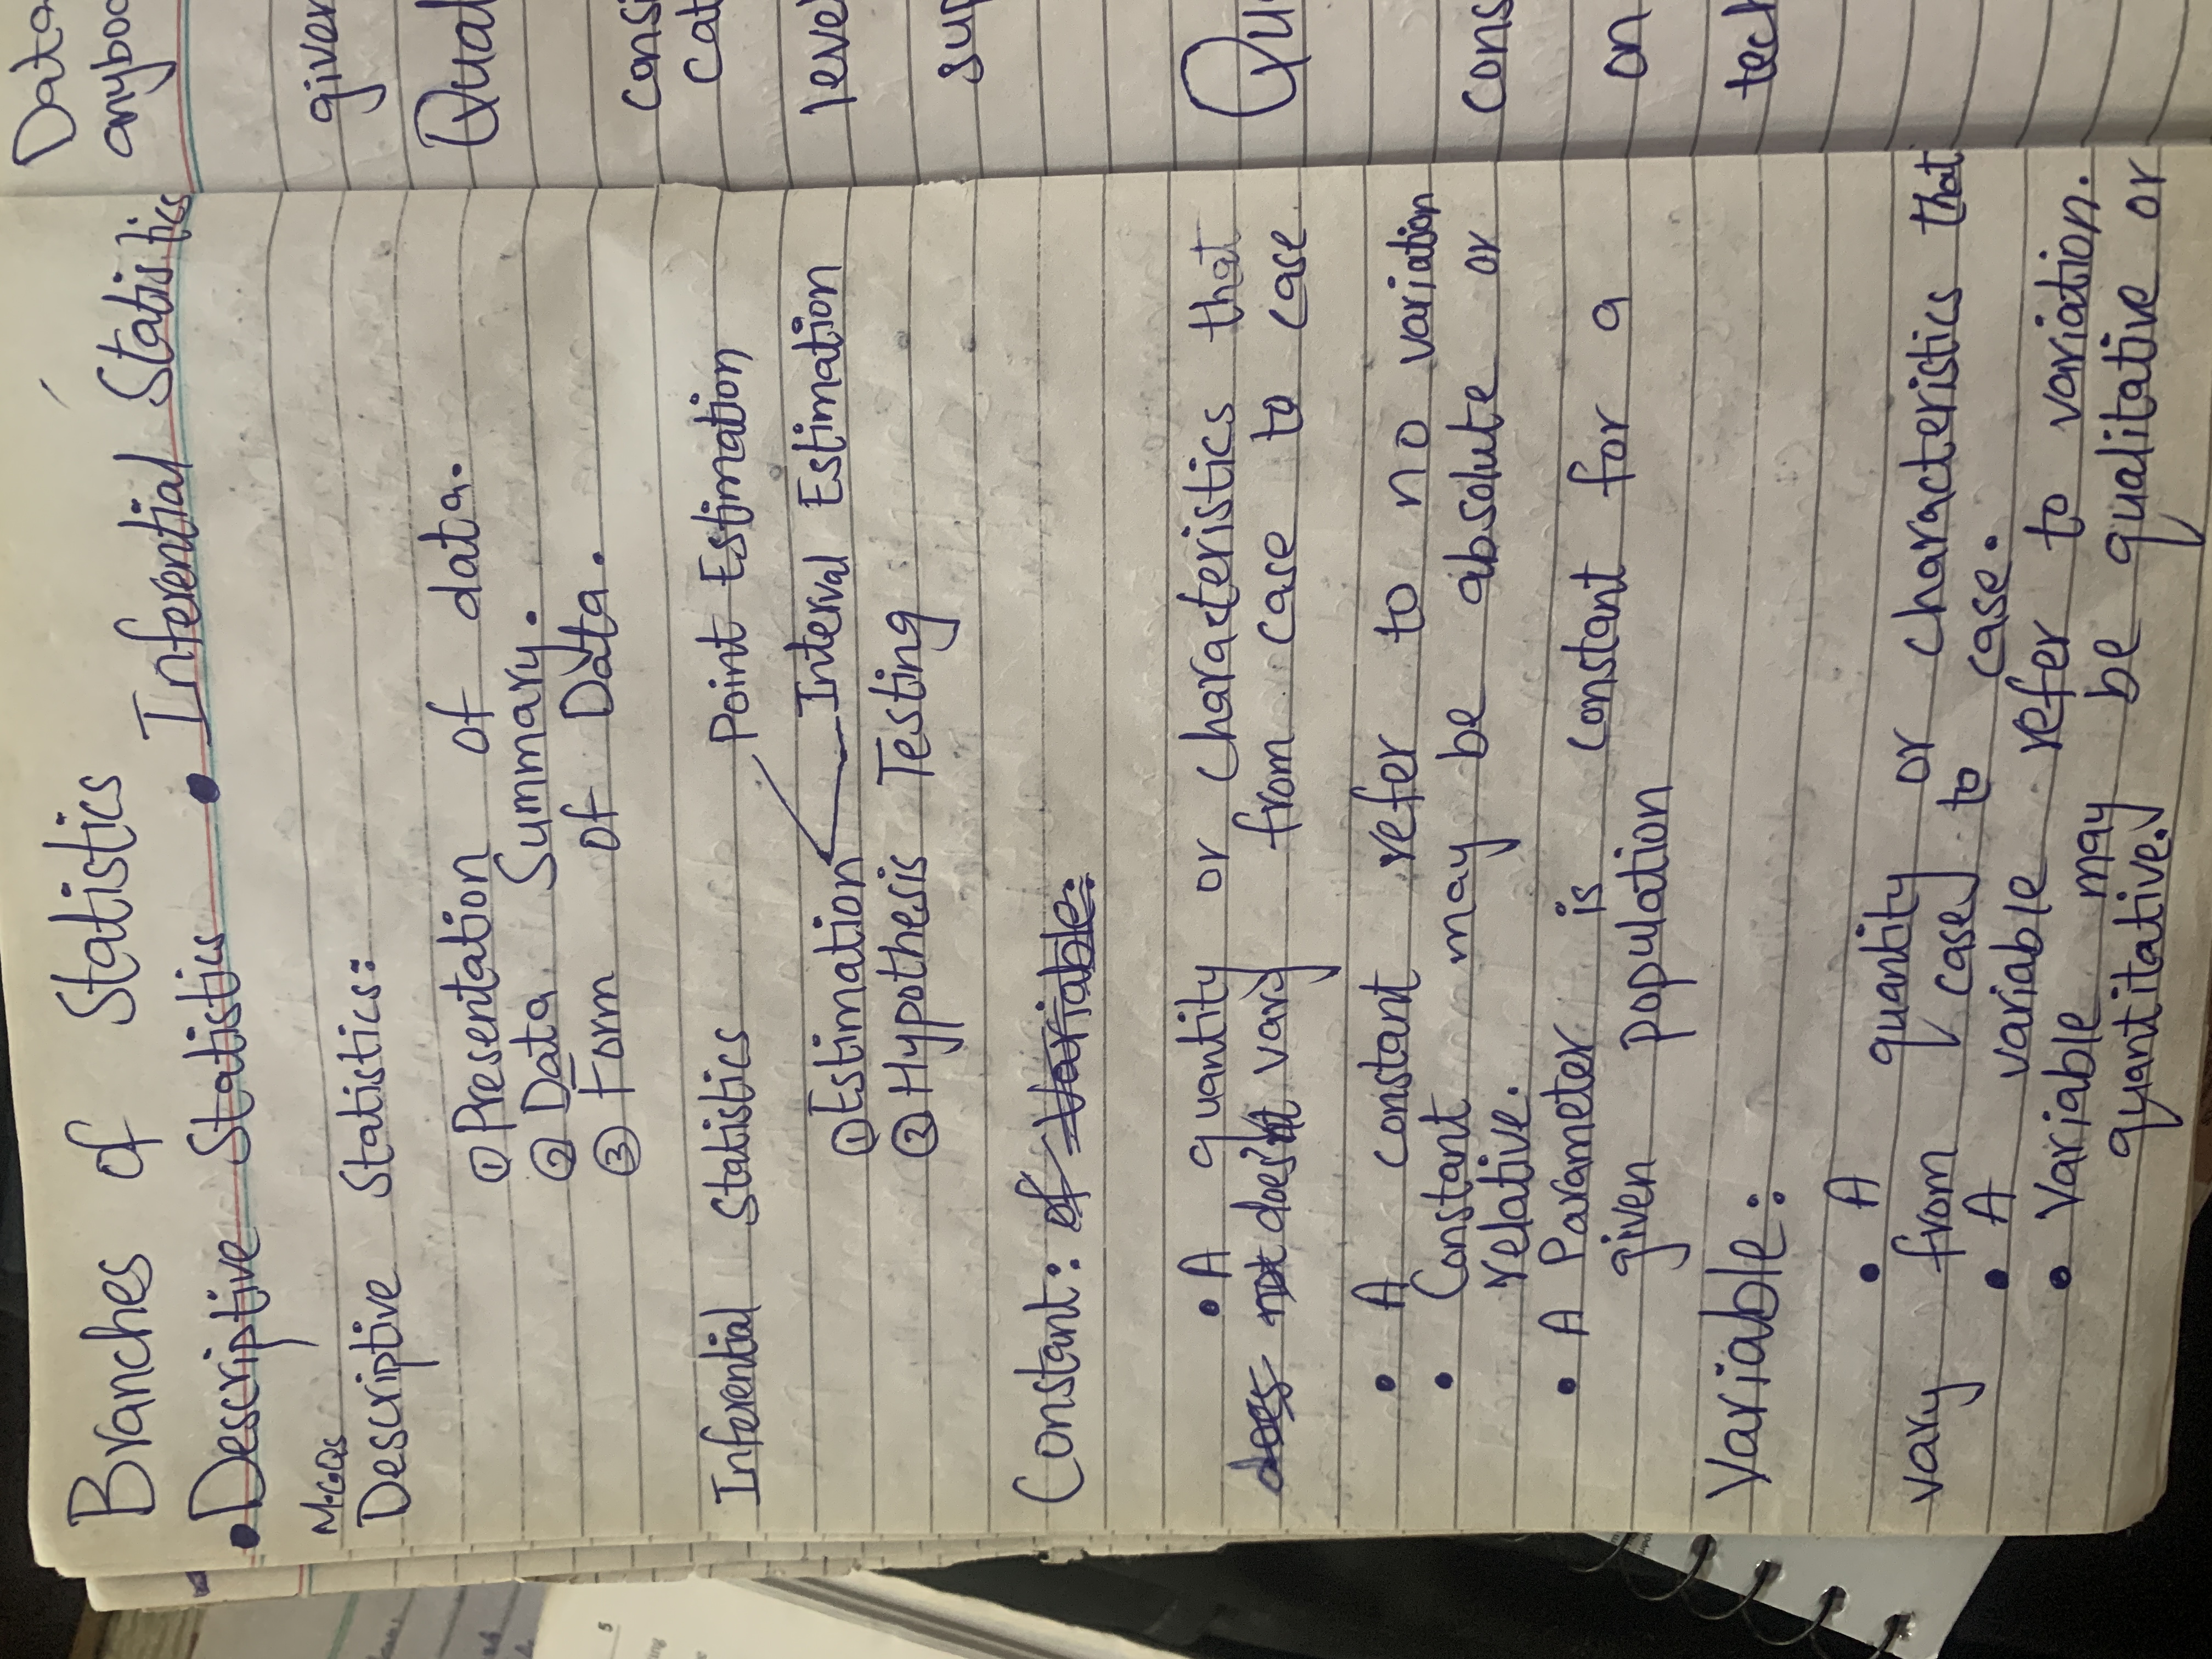 Branches of Statistics
• Descriptive Statistics • Inferential Statistics
M.C.Qs
Descriptive Statistics:
① Presentation of data.
② Data Summary.
③ Form of Data.
Inferential Statistics
Point Estimation
① Estimation
Interval Estimation
② Hypothesis Testing
Constant: of Variable:
• A quantity or characteristics that
does not does'nt vary from case to case
• A constant refer to no variation
• Constant may be absolute or
relative.
• A Parameter is constant for a
given population
Variable:
• A quantity or characteristics that
vary from case to case.
• A variable refer to variation.
• Variable may be qualitative or
quantitative.
Data
anyboc
given
Qual
consi
cat
leve
sup
Qu
cons
on
tech
5